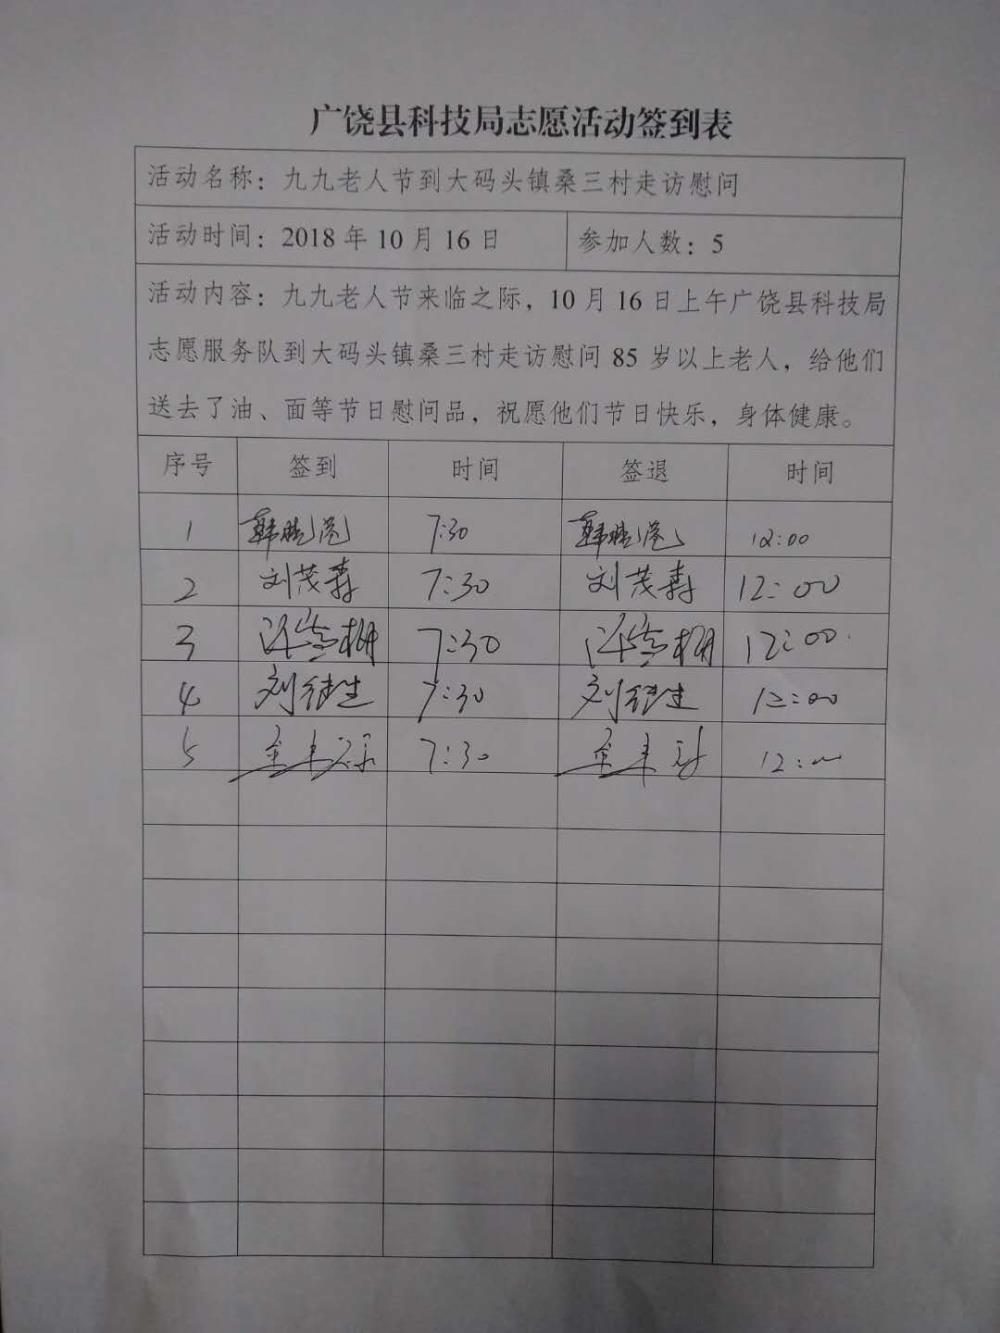 广饶县科技局志愿活动签到表
活动名称：九九老人节到大码头镇桑三村走访慰问
活动时间：2018 年 10 月 16 日 参加人数：5
活动内容：九九老人节来临之际，10 月 16 日上午广饶县科技局
志愿服务队到大码头镇桑三村走访慰问 85 岁以上老人，给他们
送去了油、面等节日慰问品，祝愿他们节日快乐，身体健康。
序号 签到 时间 签退 时间
1 7:30 12:00
2 刘茂森 7:30 刘茂森 12:00
3 7:30 12:00
4 7:30 12:00
5 7:30 12: